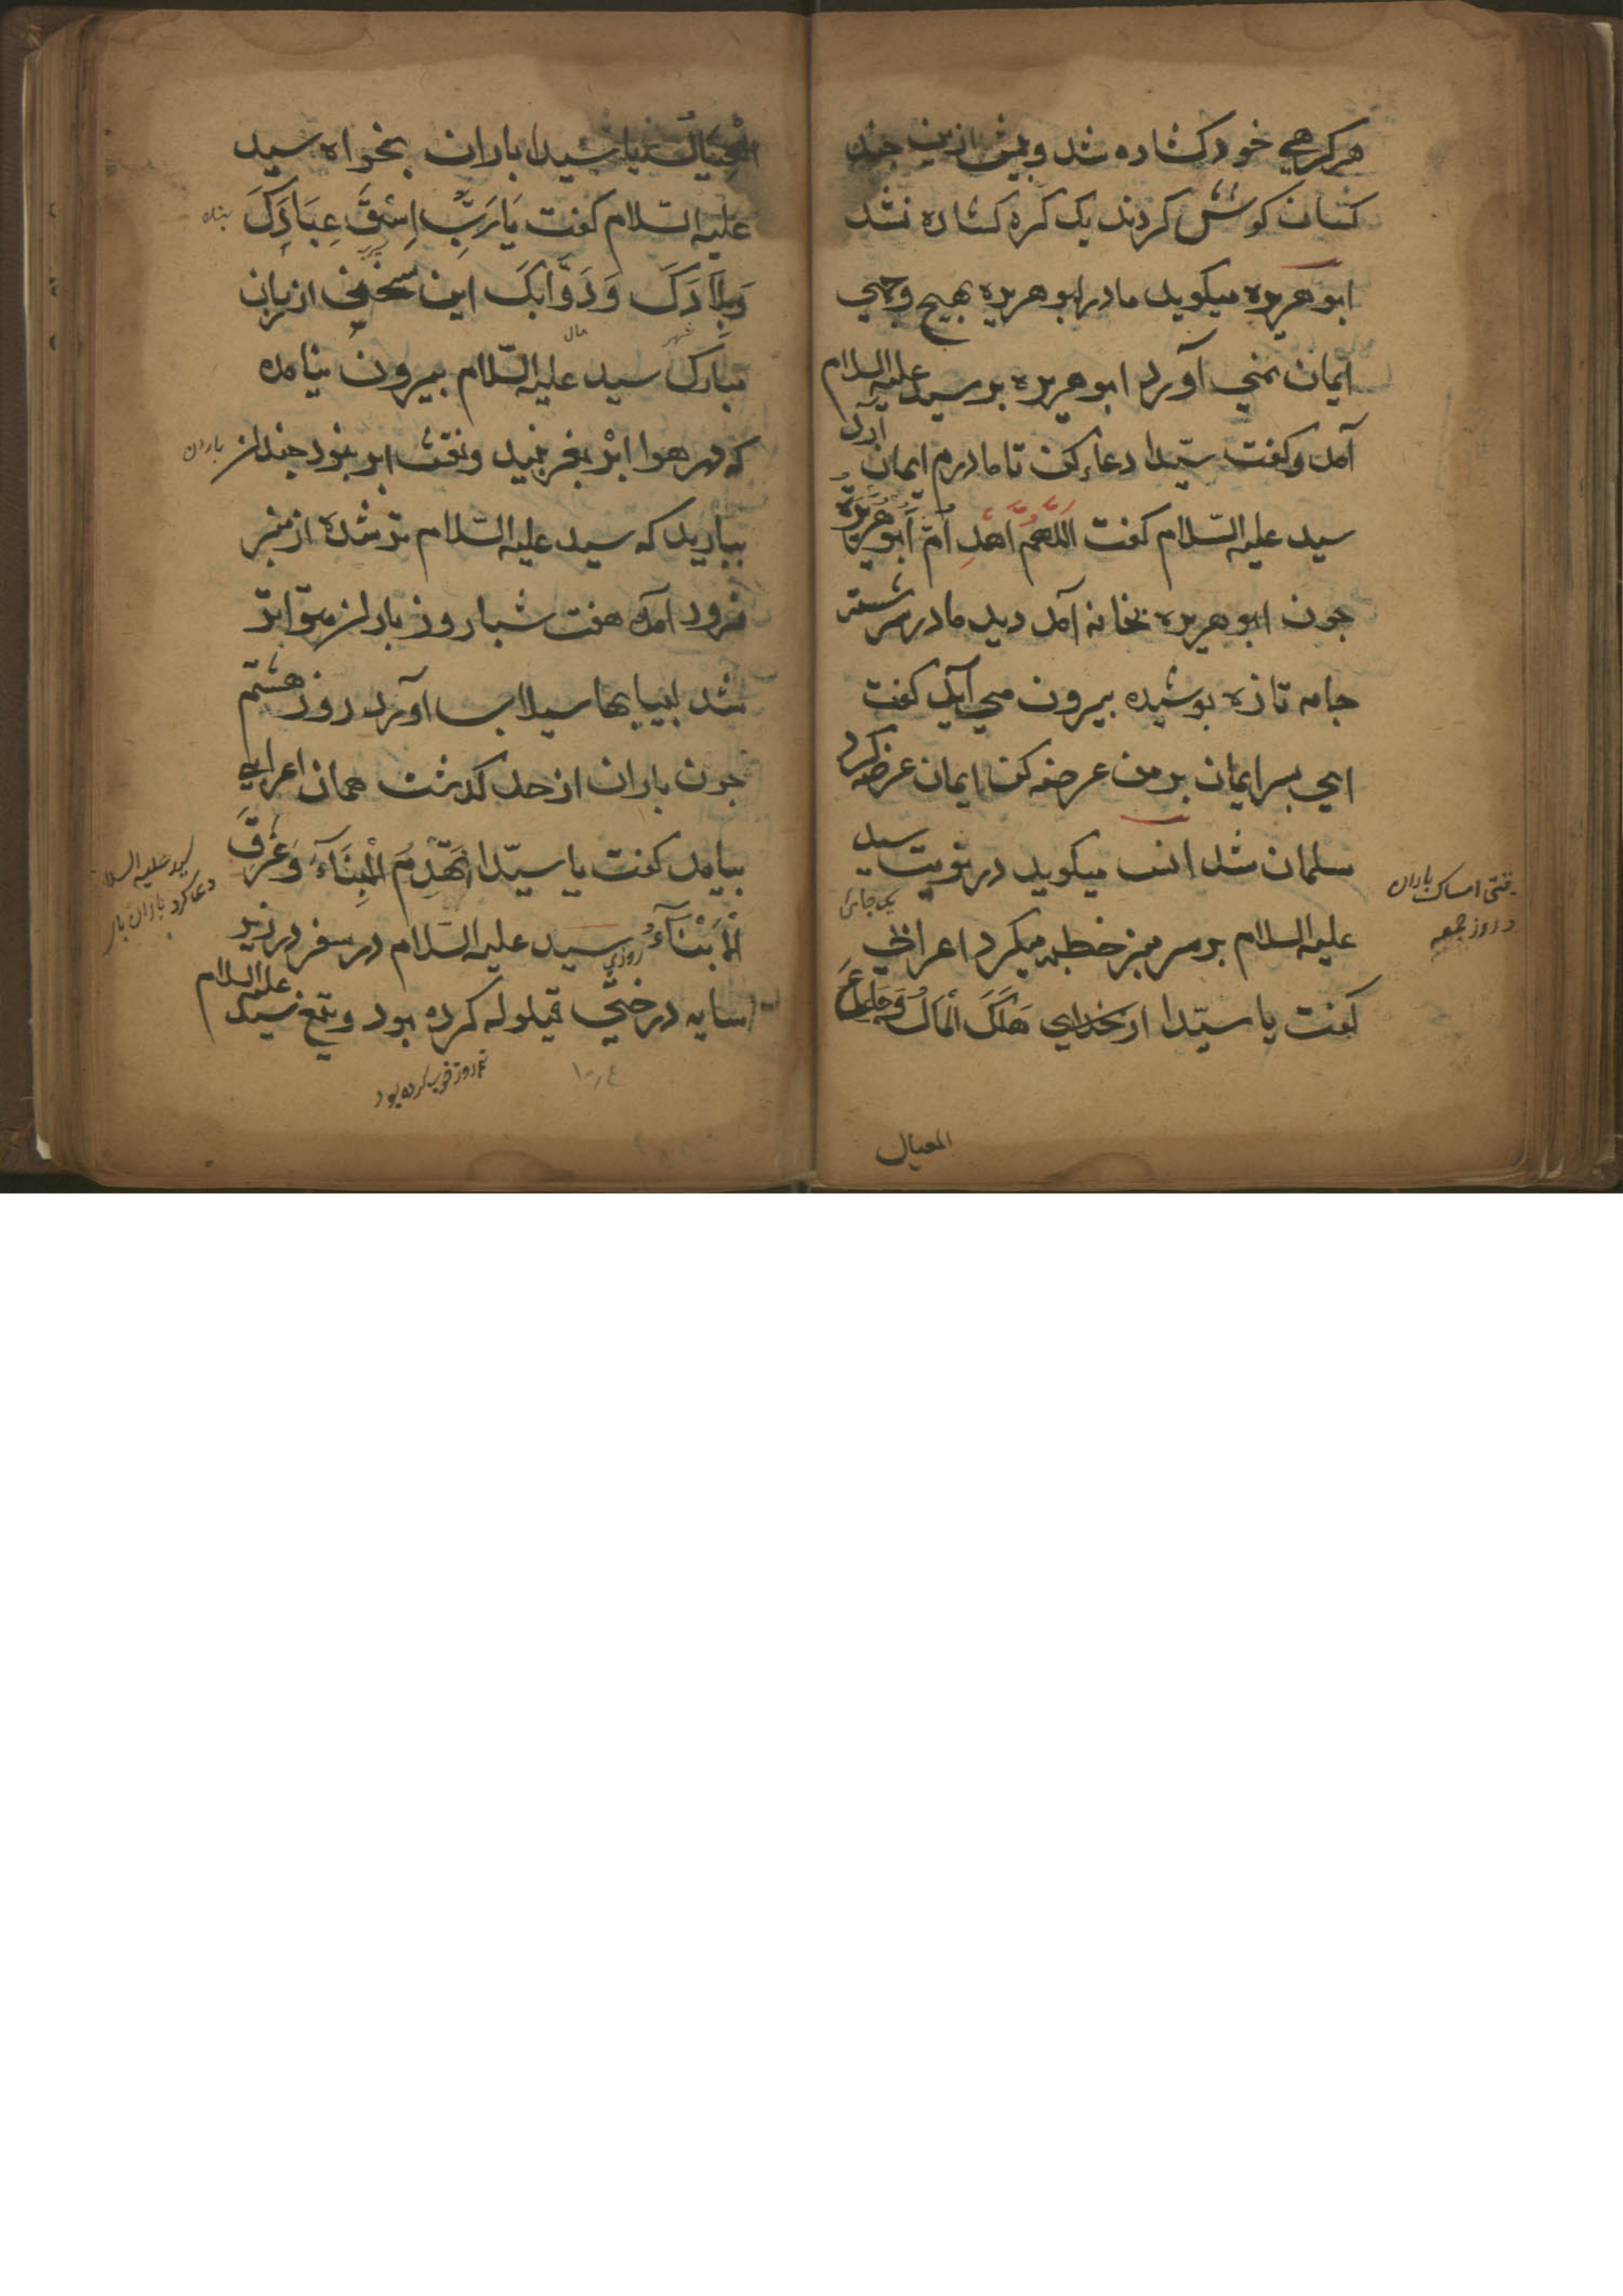 هر کرهی خود کشاده شد و پیش ازین چند
کسان کوشش کردند یک کره کشاده نشد
ابو هریره میکوید مادر ابو هریره بهیچ وجهی
ایمان نمی آورد ابو هریره بر سید علیه السلام
آمد و کفت سیّدا دعا کن تا مادرم ایمان آرد
سید علیه السّلام کفت اَللّٰهُمَّ اَهْدِ اُمَّ اَبُو هُرَیْرَةَ
جون ابو هریره بخانه آمد دید مادر سر شسته
جامه تازه پوشیده بیرون می آید کفت
ای پسر ایمان بر من عرضه کن ایمان عرضه کرد
مسلمان شد انس میکوید در نوبت سید
یک جائی
علیه السلام بر سر منبر خطبه میکرد اعرابی
کفت یا سیّدا از خدای هَلَکَ الْمَالُ وَجَاعَ
المعیال
امساک باران
در روز جمعه
الْعِیَالُ یا سیدا باران بخواه سید
علیه السّلام کفت یَا رَبِّ اِسْقِ عِبَادَکَ
وَبِلَادَکَ وَدَوَّابَکَ این سخن از زبان
شهر مال
مبارک سید علیه السّلام بیرون نیامده
که در هوا ابر بغرنبید و نقش ابر نبود جندان
باران
بباریدکه سید علیه السّلام تر شده از منبر
فرود آمد هفت شباروز باران متواتر
شد ابیابها سیلاب آورد روز هشتم
جون باران از حد کذشت همان اعرابی
بیامد کفت یا سیّدا تَهْدِمُ الْبِنَآءُ وَغَرَقَ
الْاَبْنَآءُ روزی سید علیه السّلام در سفر در زیر
سایه درختی قیلوله کرده بود و تیغ سید علیه السلام
سید علیه السلا
دعا کرد باران بار